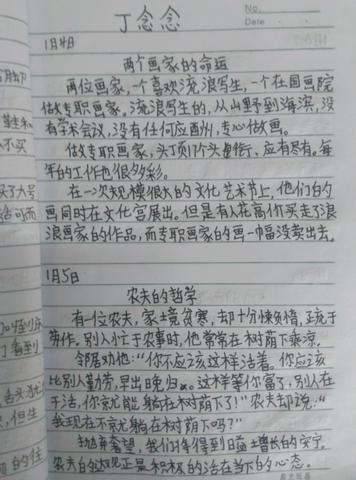 丁念念
No.
Date
1月4日
两个画家的命运
两位画家,一个喜欢流浪写生,一个在国画院
做专职画家。流浪写生的,从山野到海滨,没
有学术会议,没有任何应酬,专心做画。
做专职画家,头丁页1个头衔,应有尽有。每
年的工作也很多彩。
在一次规模很大的文化艺术节上,他们的
画同时在文化宫展出。但是有人花高价买走了浪
浪画家的作品,而专职画家的画一幅没卖出去。
1月5日
农夫的哲学
有一位农夫,家境贫寒,却十分懒惰,疏于
劳作。别人忙于农事时,他常常在树荫下乘凉。
邻居对他:“你不应该这样活着。你应该
比别人勤劳,早出晚归。这样等你富了,别人在
干活,你就能躺在树荫下了!”农夫却说:“
我现在不就躺在树荫下吗?”
抛弃奢望,我们才得到日益增长的安宁,
农夫的达观正是积极的活在当下的心态。